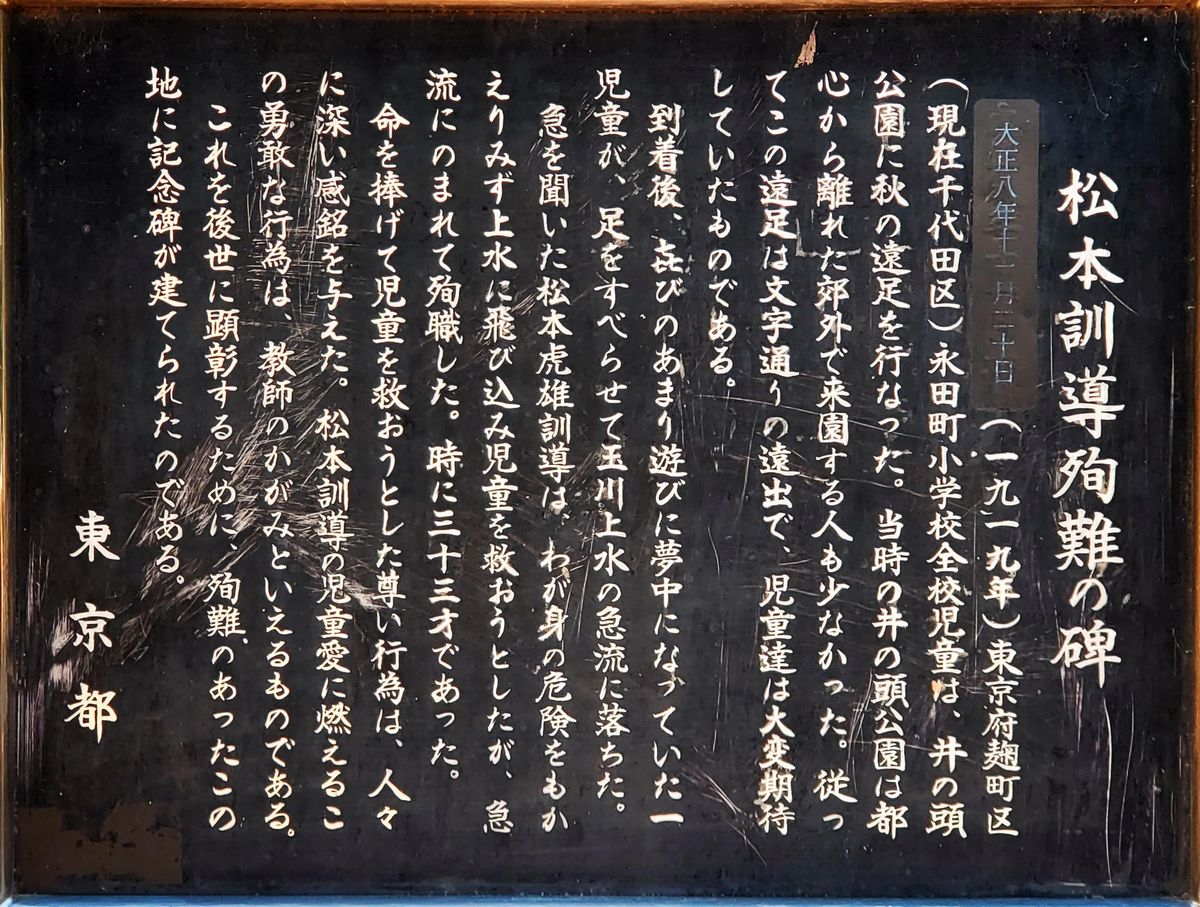 松本訓導殉難の碑
大正八年十一月二十日（一九一九年）東京府麹町区
（現在千代田区）永田町小学校全校児童は、井の頭
公園に秋の遠足を行なった。当時の井の頭公園は都
心から離れた郊外で来園する人も少なかった。従っ
てこの遠足は文字通りの遠出で、児童達は大変期待
していたものである。
到着後、㐂びのあまり遊びに夢中になっていた一
児童が、足をすべらせて玉川上水の急流に落ちた。
急を聞いた松本虎雄訓導は、わが身の危険をもか
えりみず上水に飛び込み児童を救おうとしたが、急
流にのまれて殉職した。時に三十三才であった。
命を捧げて児童を救おうとした尊い行為は、人々
に深い感銘を与えた。松本訓導の児童愛に燃えるこ
の勇敢な行為は、教師のかがみといえるものである。
これを後世に顕彰するために、殉難のあったこの
地に記念碑が建てられたのである。
東京都